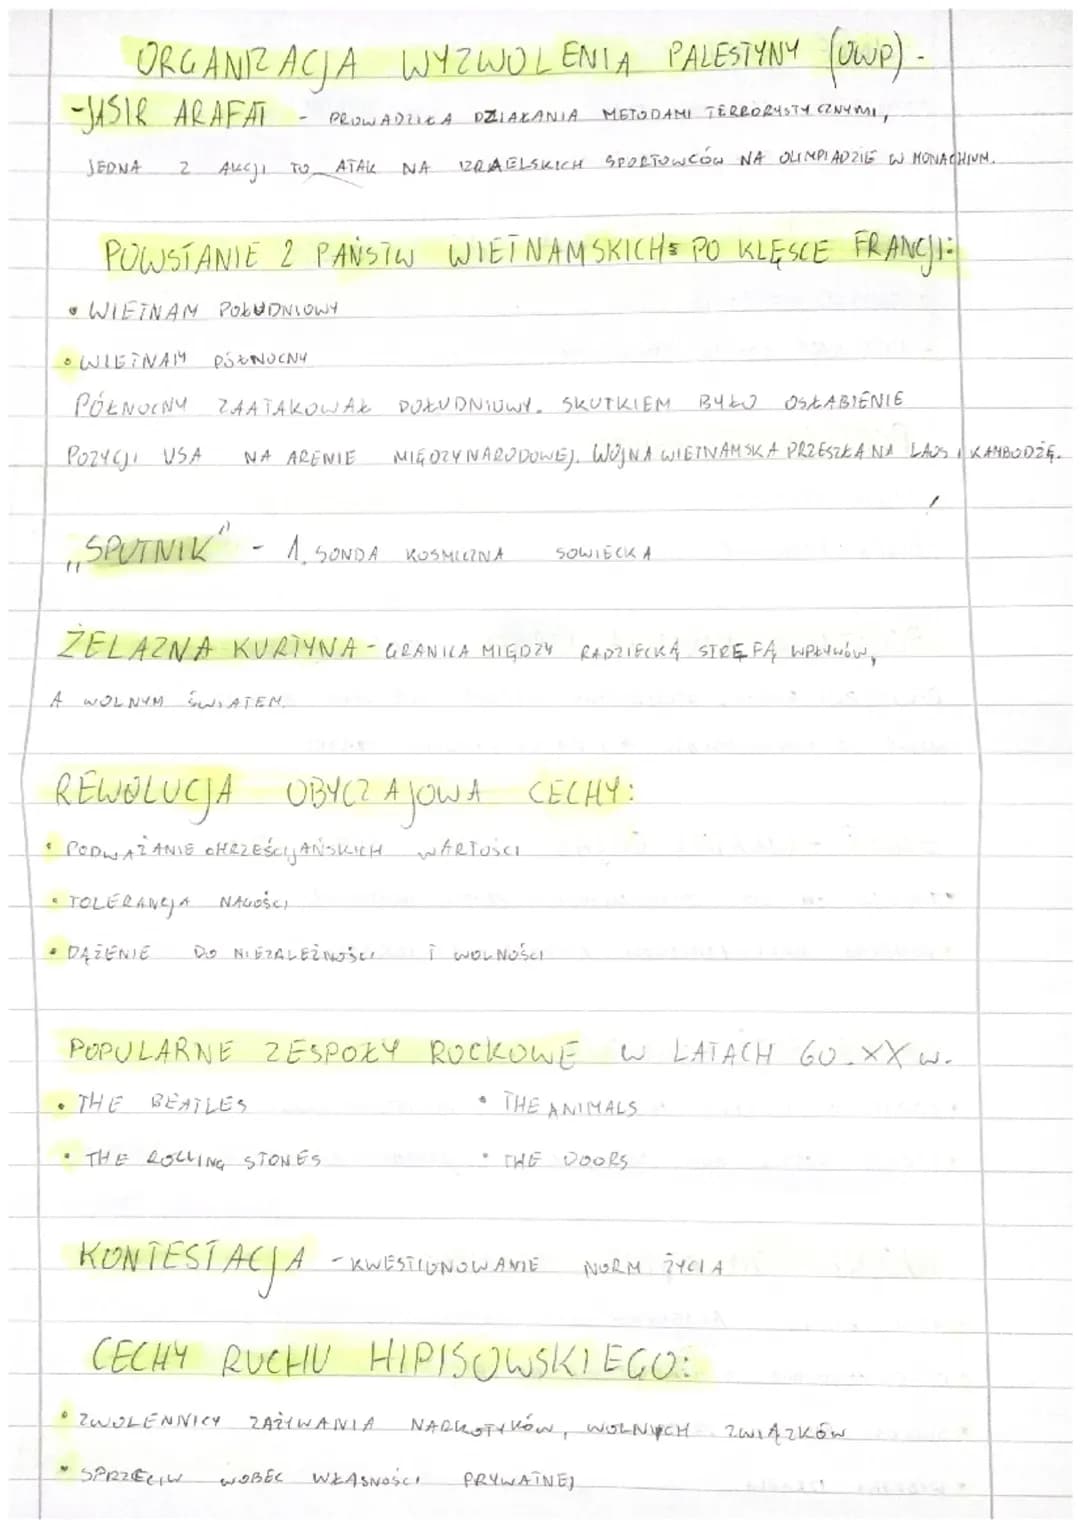 ORGANIZACJA WYZWOLENIA PALESTYNY (OWP) -
- JASIR ARAFAT - PROWADZIŁA DZIAŁANIA METODAMI TERRORYSTYCZNYMI,
JEDNA Z AKCJI TO ATAK NA IZRAELSKICH SPORTOWCÓW NA OLIMPIADZIE W MONACHIUM.
POWSTANIE 2 PAŃSTW WIETNAMSKICH PO KLĘSCE FRANCJI:
• WIETNAM POŁUDNIOWY
• WIETNAM PÓŁNOCNY
PÓŁNOCNY ZAATAKOWAŁ POŁUDNIOWY. SKUTKIEM BYŁO OSŁABIENIE
POZYCJI USA NA ARENIE MIĘDZYNARODOWEJ. WOJNA WIETNAMSKA PRZESZŁA NA LAOS I KAMBODŻĘ.
„SPUTNIK" - 1. SONDA KOSMICZNA SOWIECKA
ŻELAZNA KURTYNA - GRANICA MIĘDZY RADZIECKĄ STREFĄ WPŁYWÓW,
A WOLNYM ŚWIATEM.
REWOLUCJA OBYCZAJOWA CECHY:
• PODWAŻANIE CHRZEŚCIJAŃSKICH WARTOŚCI
• TOLERANCJA NAGOŚCI
• DĄŻENIE DO NIEZALEŻNOŚCI I WOLNOŚCI
POPULARNE ZESPOŁY ROCKOWE W LATACH 60. XX W.
• THE BEATLES • THE ANIMALS
• THE ROLLING STONES • THE DOORS
KONTESTACJA - KWESTIONOWANIE NORM ŻYCIA
CECHY RUCHU HIPISOWSKIEGO:
• ZWOLENNICY ZAŻYWANIA NARKOTYKÓW, WOLNYCH ZWIĄZKÓW
• SPRZECIW WOBEC WŁASNOŚCI PRYWATNEJ